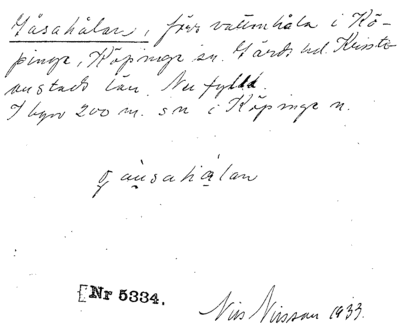 Gåsahålan, förr vattenhåla i Kö-
pinge, Köpinge sn. Gärds hd. Kristi-
anstads län. Nu fylld.
I byn 200 m. sn i Köpinge n.
gåusahålan
[Nr 5334.
Nils Nilsson 1933.